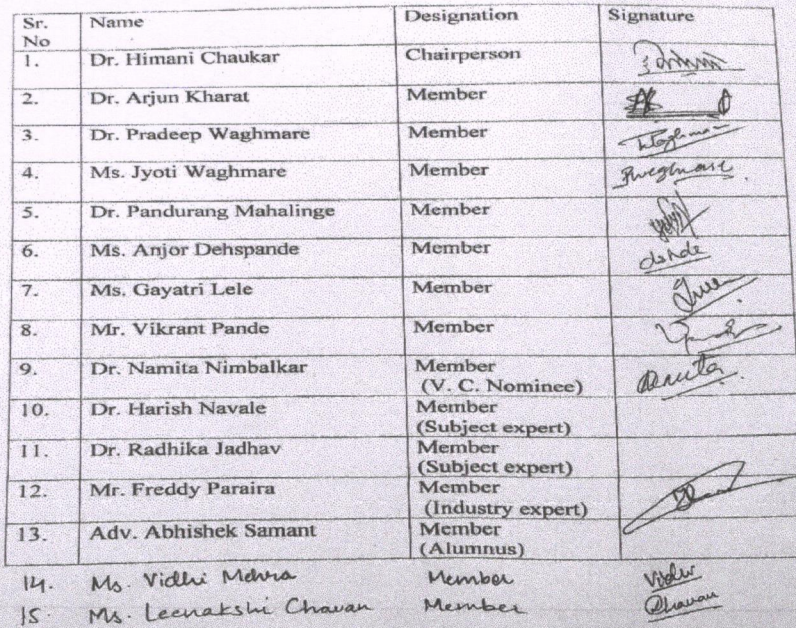 Sr. No Name Designation Signature
1. Dr. Himani Chaukar Chairperson
2. Dr. Arjun Kharat Member
3. Dr. Pradeep Waghmare Member Waghmare
4. Ms. Jyoti Waghmare Member Jwaghmare
5. Dr. Pandurang Mahalinge Member
6. Ms. Anjor Dehspande Member
7. Ms. Gayatri Lele Member
8. Mr. Vikrant Pande Member
9. Dr. Namita Nimbalkar Member
(V. C. Nominee)
10. Dr. Harish Navale Member
(Subject expert)
11. Dr. Radhika Jadhav Member
(Subject expert)
12. Mr. Freddy Paraira Member
(Industry expert)
13. Adv. Abhishek Samant Member
(Alumnus)
14. Ms. Vidhi Mehra Member Vidhi
15. Ms. Leenakshi Chavan Member Chavan